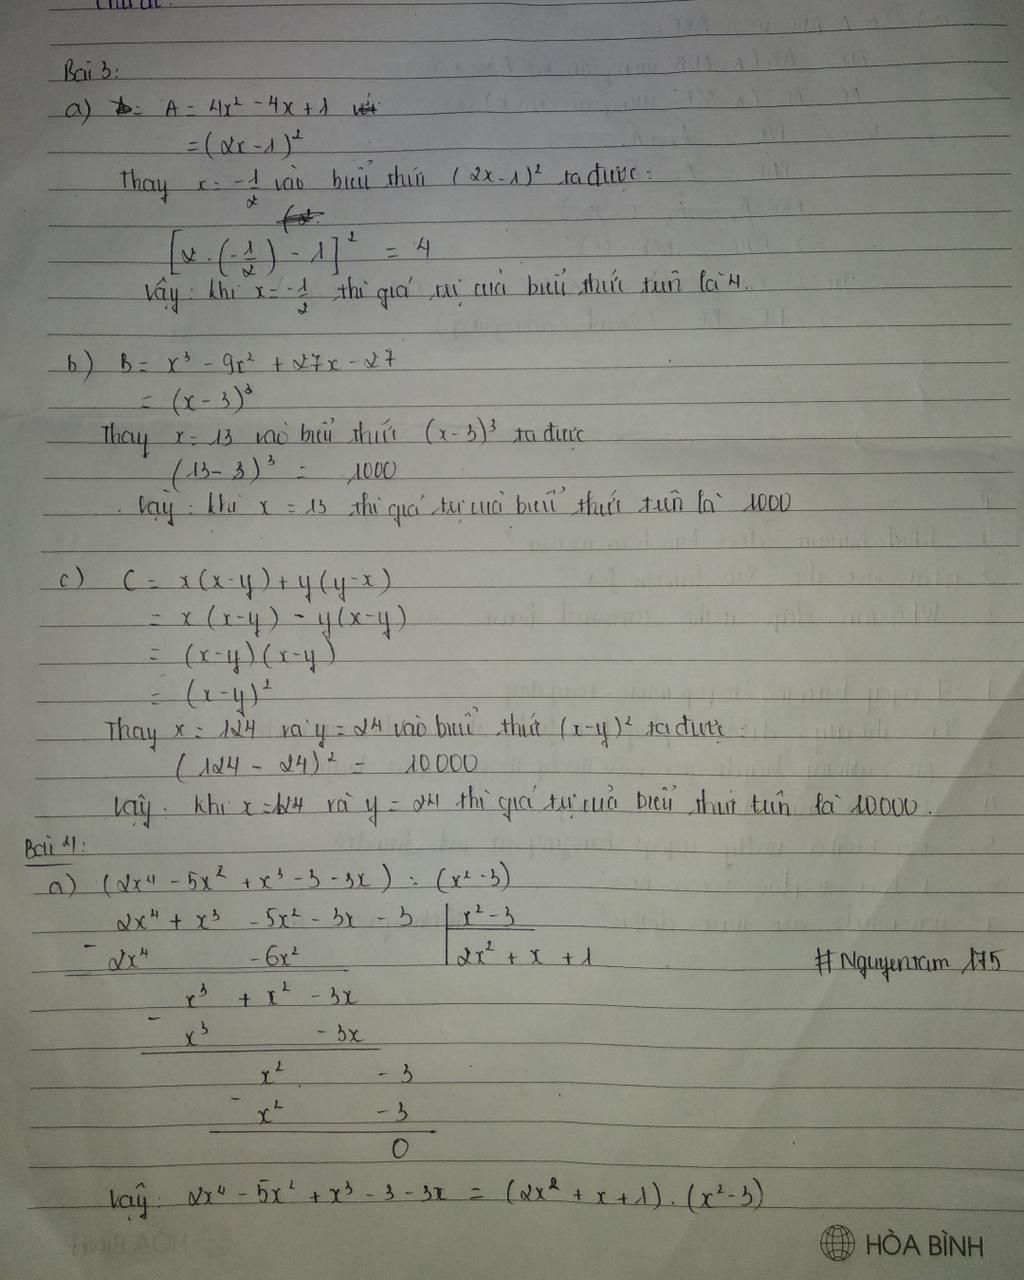 Bài 3:
a) A = 4x² - 4x + 1
= (2x - 1)²
Thay x = -1/2 vào biểu thức (2x - 1)² ta được:
[2 . (-1/2) - 1]² = 4
Vậy: khi x = -1/2 thì giá trị của biểu thức trên là 4.
b) B = x³ - 9x² + 27x - 27
= (x - 3)³
Thay x = 13 vào biểu thức (x - 3)³ ta được
(13 - 3)³ = 1000
Vậy: khi x = 13 thì giá trị của biểu thức trên là 1000
c) C = x(x-y) + y(y-x)
= x(x-y) - y(x-y)
= (x-y)(x-y)
= (x-y)²
Thay x = 124 và y = 24 vào biểu thức (x-y)² ta được:
(124 - 24)² = 10000
Vậy: khi x = 124 và y = 24 thì giá trị của biểu thức trên là 10000.
Bài 4:
a) (2x⁴ - 5x² + x³ - 3 - 3x) : (x² - 3)
2x⁴ + x³ - 5x² - 3x - 3 | x² - 3
- 2x⁴ - 6x² | 2x² + x + 1
#Nguyentam 175
x³ + x² - 3x
- x³ - 3x
x² - 3
- x² - 3
0
Vậy: 2x⁴ - 5x² + x³ - 3 - 3x = (2x² + x + 1) . (x² - 3)
HÒA BÌNH